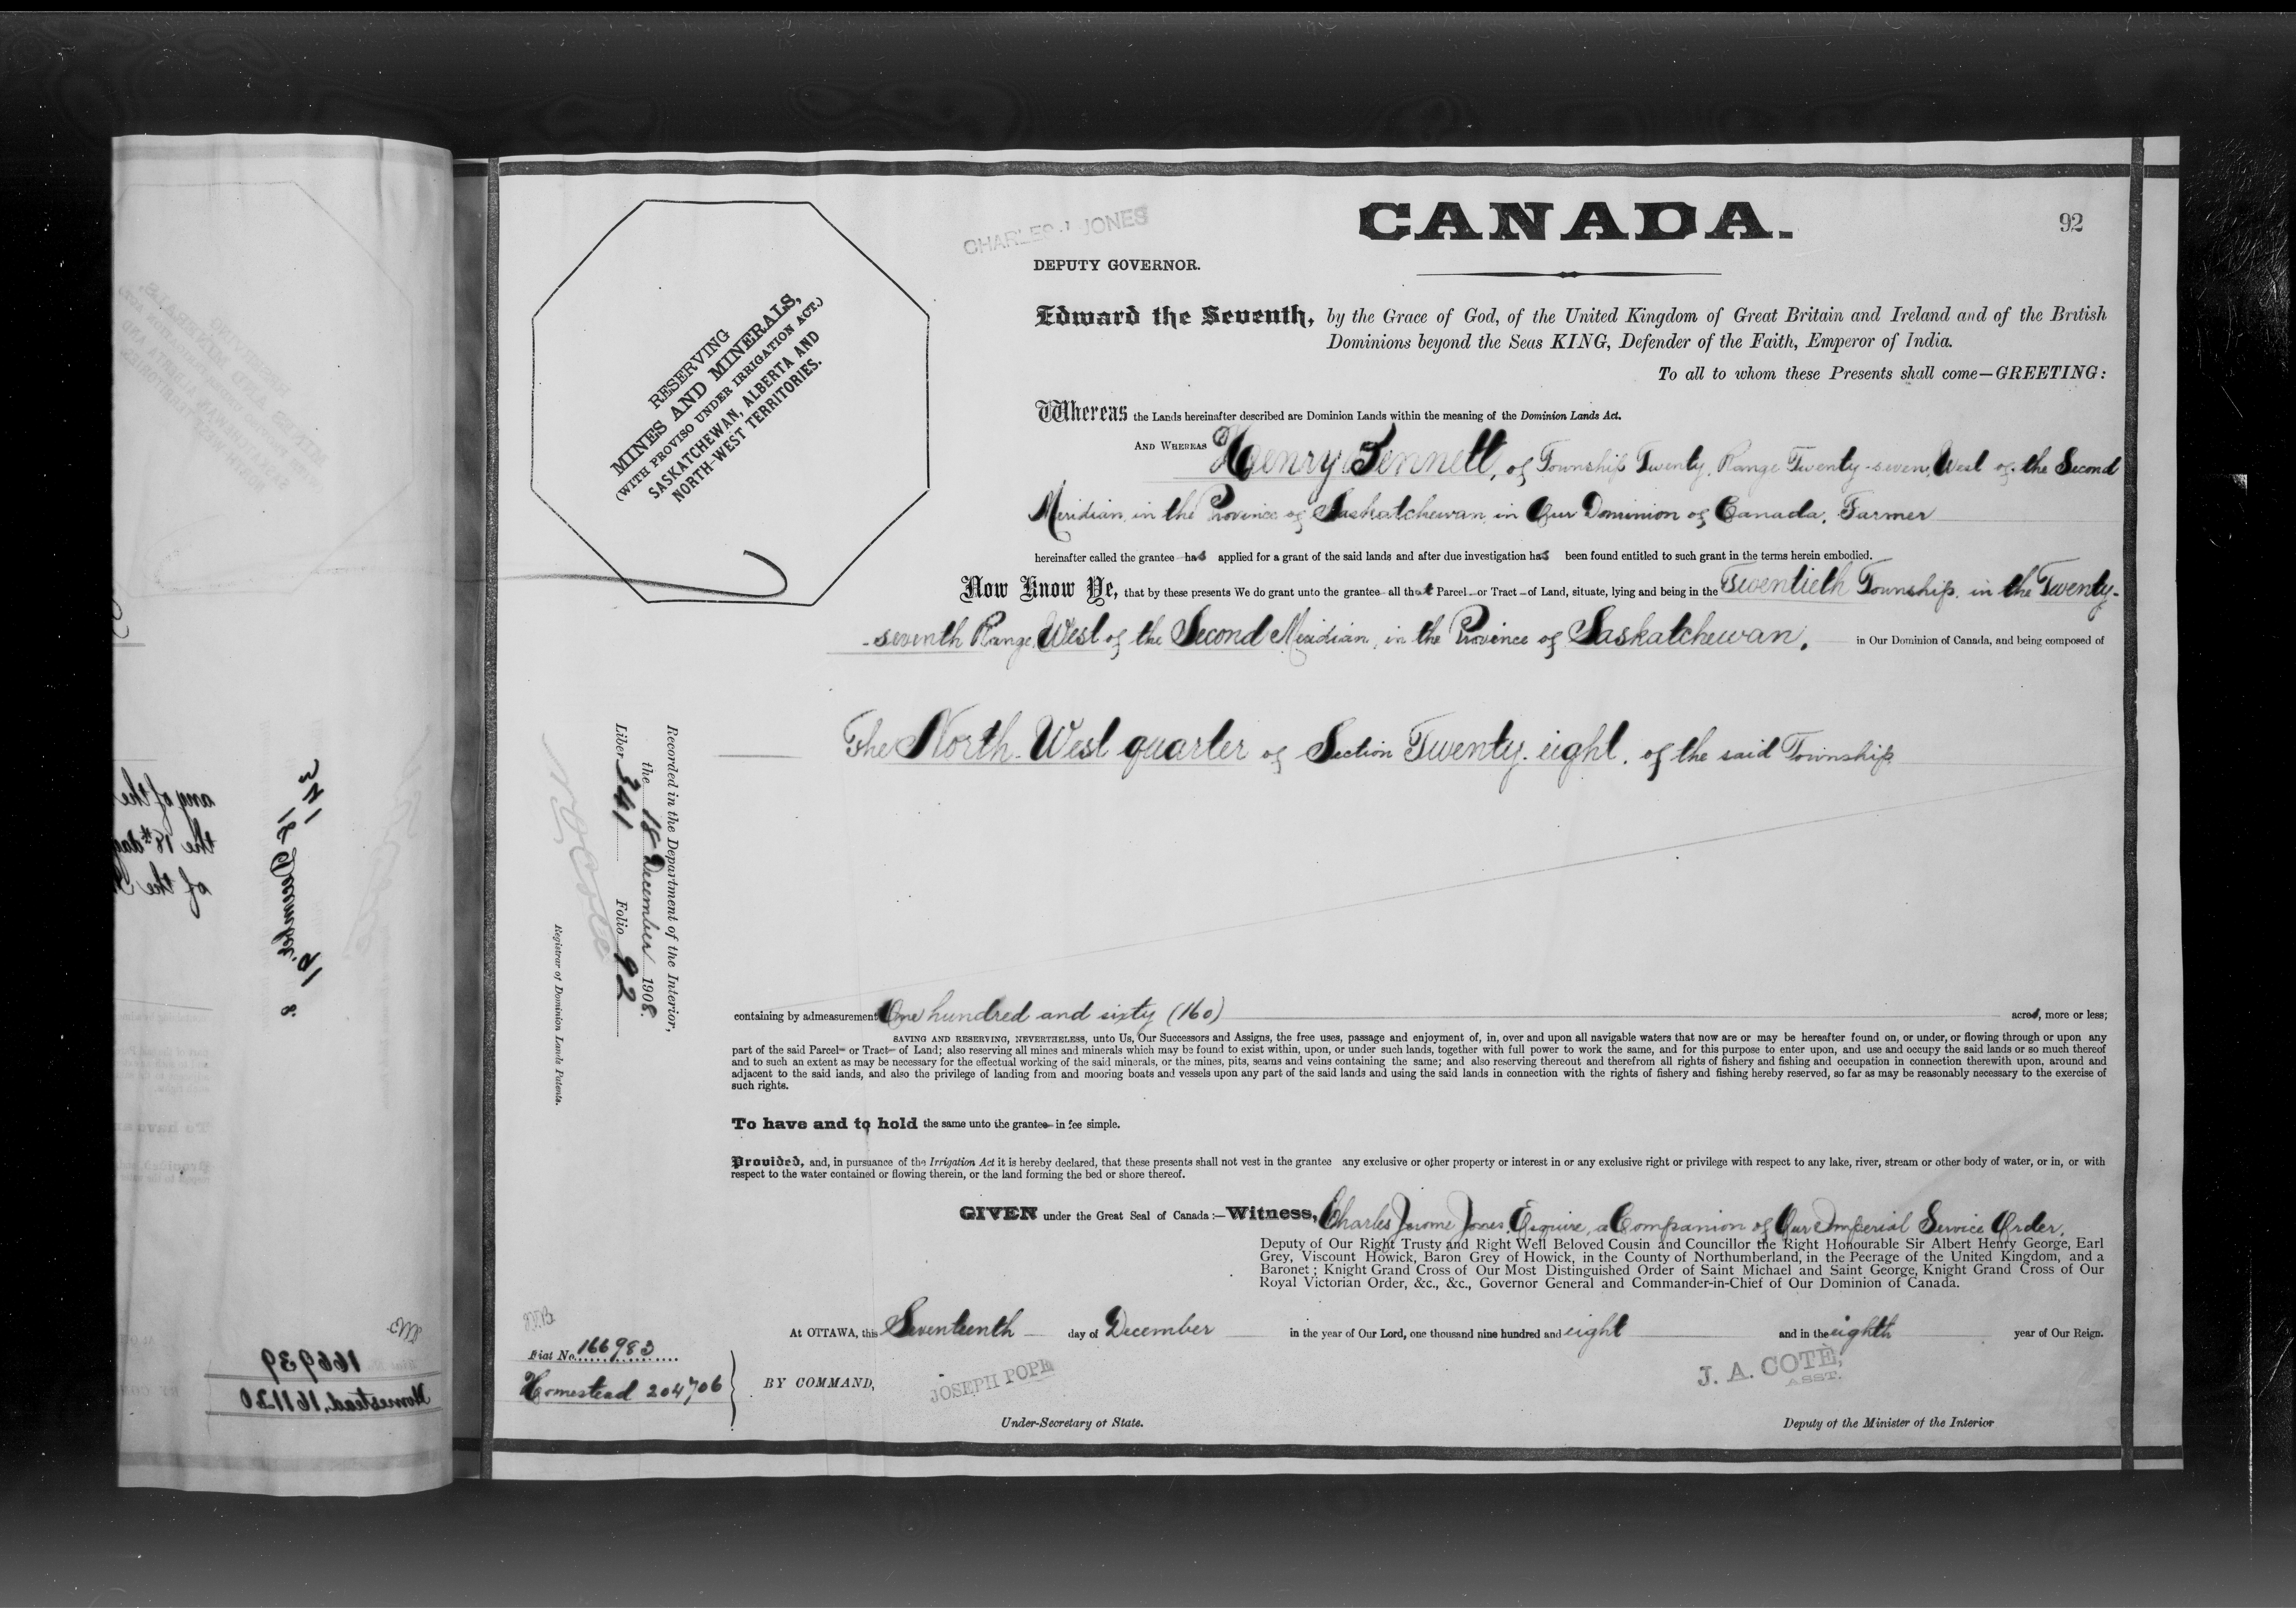 CANADA.
92
CHARLES J JONES
DEPUTY GOVERNOR.
RESERVING
MINES AND MINERALS,
(WITH PROVISO UNDER IRRIGATION ACT.)
SASKATCHEWAN, ALBERTA AND
NORTH-WEST TERRITORIES.
Edward the Seventh, by the Grace of God, of the United Kingdom of Great Britain and Ireland and of the British
Dominions beyond the Seas KING, Defender of the Faith, Emperor of India.
To all to whom these Presents shall come—GREETING:
Whereas the Lands hereinafter described are Dominion Lands within the meaning of the Dominion Lands Act.
AND WHEREAS Henry Fennell, of Township Twenty, Range Twenty-seven, West of the Second
Meridian, in the Province of Saskatchewan, in Our Dominion of Canada, Farmer
hereinafter called the grantee has applied for a grant of the said lands and after due investigation has been found entitled to such grant in the terms herein embodied.
Now Know Ye, that by these presents We do grant unto the grantee all that Parcel or Tract of Land, situate, lying and being in the Twentieth Township, in the Twenty-
-seventh Range, West of the Second Meridian, in the Province of Saskatchewan, in Our Dominion of Canada, and being composed of
The North-West quarter of Section Twenty-eight, of the said Township
Recorded in the Department of the Interior,
the 18 December 1908.
Liber 341 Folio 92
Registrar of Dominion Lands Patents.
containing by admeasurement One hundred and sixty (160) acres, more or less;
SAVING AND RESERVING, NEVERTHELESS, unto Us, Our Successors and Assigns, the free uses, passage and enjoyment of, in, over and upon all navigable waters that now are or may be hereafter found on, or under, or flowing through or upon any
part of the said Parcel or Tract of Land; also reserving all mines and minerals which may be found to exist within, upon, or under such lands, together with full power to work the same, and for this purpose to enter upon, and use and occupy the said lands or so much thereof
and to such an extent as may be necessary for the effectual working of the said minerals, or the mines, pits, seams and veins containing the same; and also reserving thereout and therefrom all rights of fishery and fishing and occupation in connection therewith upon, around and
adjacent to the said lands, and also the privilege of landing from and mooring boats and vessels upon any part of the said lands and using the said lands in connection with the rights of fishery and fishing hereby reserved, so far as may be reasonably necessary to the exercise of
such rights.
To have and to hold the same unto the grantee in fee simple.
Provided, and, in pursuance of the Irrigation Act it is hereby declared, that these presents shall not vest in the grantee any exclusive or other property or interest in or any exclusive right or privilege with respect to any lake, river, stream or other body of water, or in, or with
respect to the water contained or flowing therein, or the land forming the bed or shore thereof.
GIVEN under the Great Seal of Canada:—Witness, Charles Jerome Jones, Esquire, a Companion of Our Imperial Service Order,
Deputy of Our Right Trusty and Right Well Beloved Cousin and Councillor the Right Honourable Sir Albert Henry George, Earl
Grey, Viscount Howick, Baron Grey of Howick, in the County of Northumberland, in the Peerage of the United Kingdom, and a
Baronet; Knight Grand Cross of Our Most Distinguished Order of Saint Michael and Saint George, Knight Grand Cross of Our
Royal Victorian Order, &c., &c., Governor General and Commander-in-Chief of Our Dominion of Canada.
At OTTAWA, this Seventeenth day of December in the year of Our Lord, one thousand nine hundred and eight and in the eighth year of Our Reign.
Fiat No. 166983
Homestead 204706
BY COMMAND,
JOSEPH POPE
Under-Secretary of State.
J. A. COTÈ,
ASST.
Deputy of the Minister of the Interior
any of the
the 18th day
of the
341
18 December 8
92
166939
Homestead, 161120